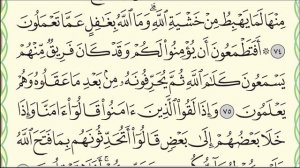 مِنْهَا لَمَا يَهْبِطُ مِنْ خَشْيَةِ ٱللَّهِ وَمَا ٱللَّهُ بِغَٰفِلٍ عَمَّا تَعْمَلُونَ
٧٤ أَفَتَطْمَعُونَ أَن يُؤْمِنُوا۟ لَكُمْ وَقَدْ كَانَ فَرِيقٌ مِّنْهُمْ
يَسْمَعُونَ كَلَٰمَ ٱللَّهِ ثُمَّ يُحَرِّفُونَهُۥ مِنۢ بَعْدِ مَا عَقَلُوهُ وَهُمْ
يَعْلَمُونَ ٧٥ وَإِذَا لَقُوا۟ ٱلَّذِينَ ءَامَنُوا۟ قَالُوٓا۟ ءَامَنَّا وَإِذَا
خَلَا بَعْضُهُمْ إِلَىٰ بَعْضٍ قَالُوٓا۟ أَتُحَدِّثُونَهُم بِمَا فَتَحَ ٱللَّهُ